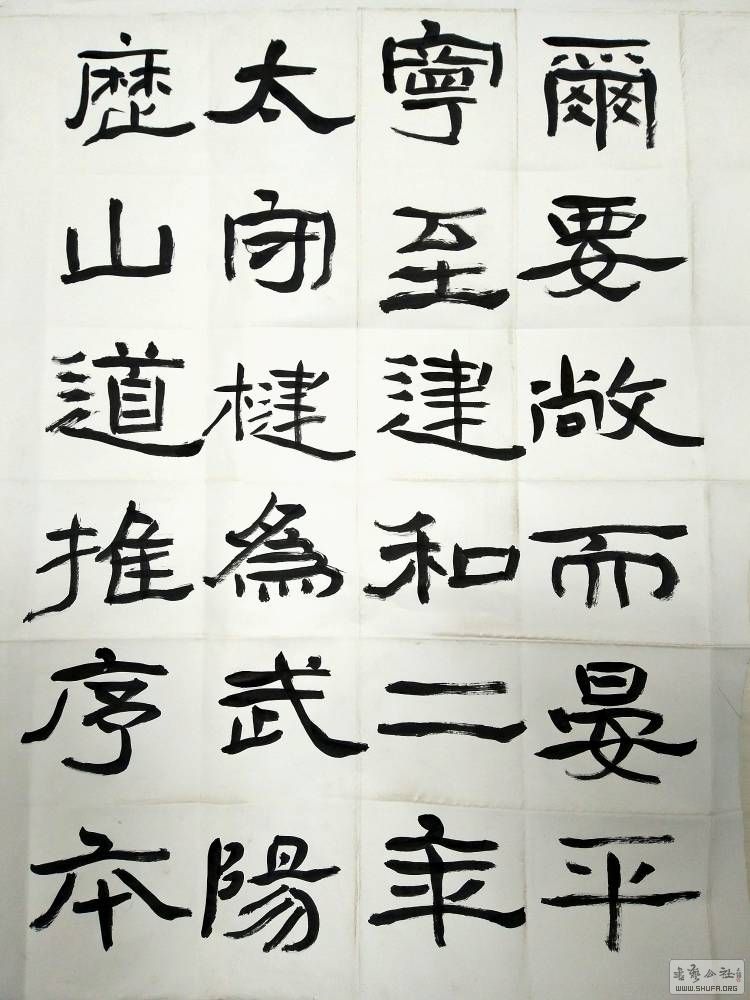 爾要敞而晏平
寧至建和二年
太守楗爲武陽
歷山道推序本
书艺公社
WWW.SHUFA.ORG